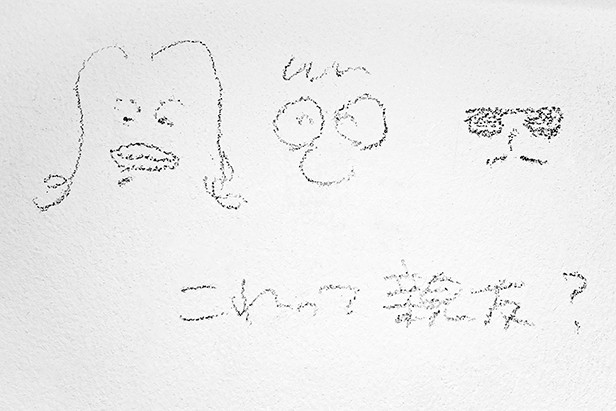 これって親友?